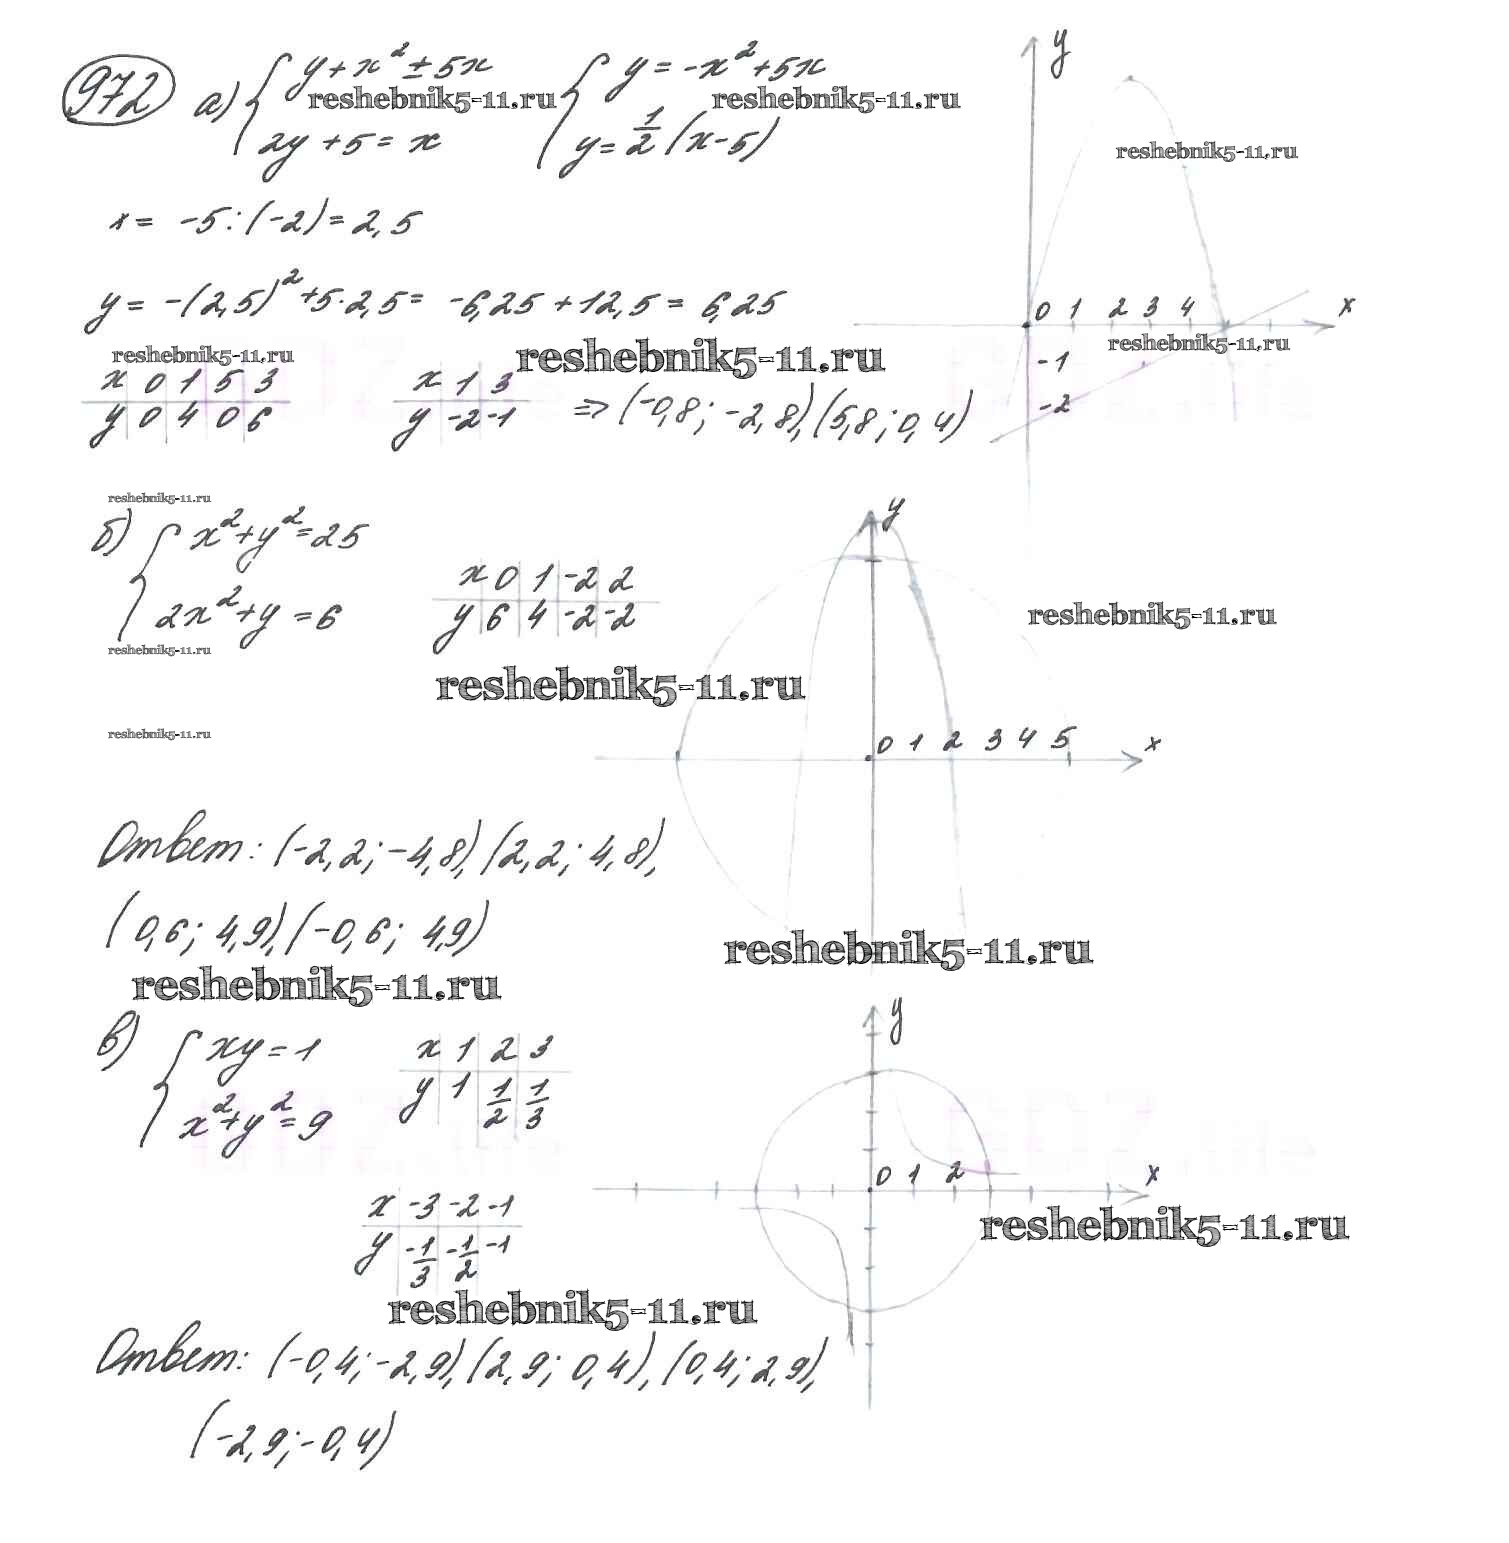 972 а) { y + x² ± 5x { y = -x² + 5x y
reshebnik5-11.ru reshebnik5-11.ru
2y + 5 = x y = 1/2 (x - 5)
reshebnik5-11.ru
x = -5 : (-2) = 2,5
y = -(2,5)² + 5 · 2,5 = -6,25 + 12,5 = 6,25
0 1 2 3 4 x
reshebnik5-11.ru reshebnik5-11.ru reshebnik5-11.ru
-1
x 0 1 5 3 x 1 3
y 0 4 0 6 y -2 -1 => (-0,8; -2,8), (5,8; 0,4)
-2
reshebnik5-11.ru
y
б) { x² + y² = 25
2x² + y = 6
x 0 1 -2 2
y 6 4 -2 -2
reshebnik5-11.ru
reshebnik5-11.ru
reshebnik5-11.ru
reshebnik5-11.ru
0 1 2 3 4 5 x
Ответ: (-2,2; -4,8), (2,2; 4,8),
(0,6; 4,9), (-0,6; 4,9)
reshebnik5-11.ru
reshebnik5-11.ru
y
в) { xy = 1
x² + y² = 9
x 1 2 3
y 1 1/2 1/3
0 1 2 x
x -3 -2 -1
y -1/3 -1/2 -1
reshebnik5-11.ru
reshebnik5-11.ru
Ответ: (-0,4; -2,9), (2,9; 0,4), (0,4; 2,9),
(-2,9; -0,4)